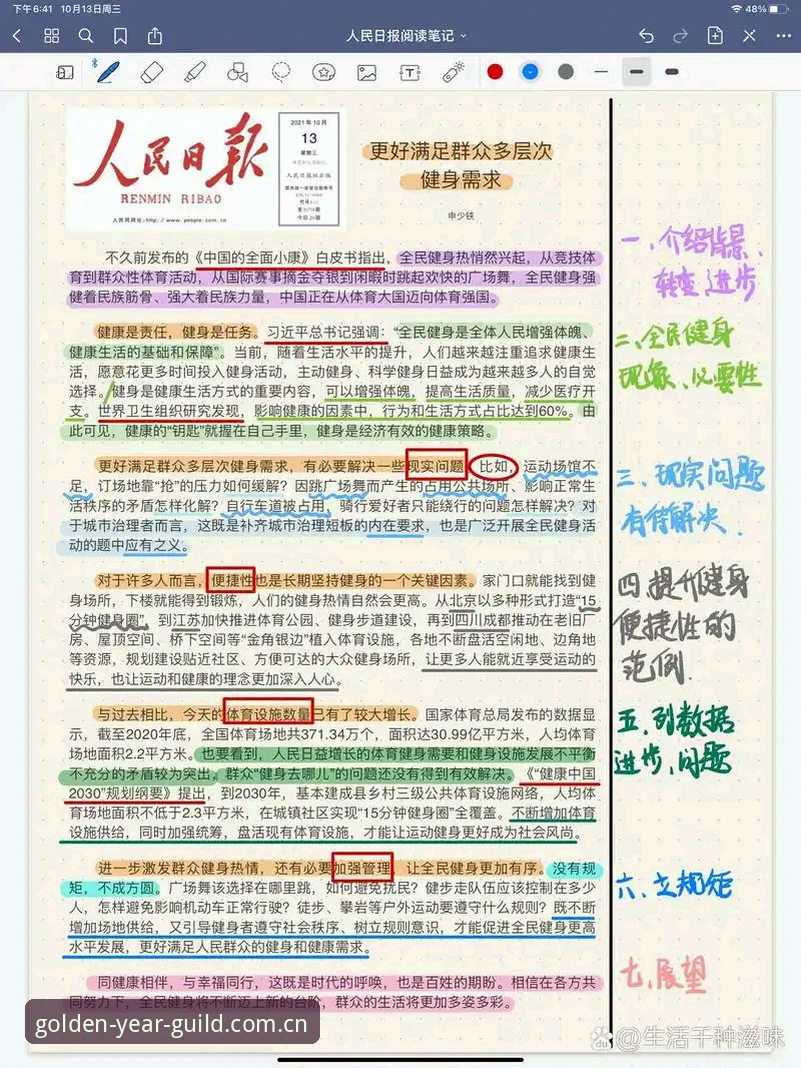 下午6:41 10月13日周三
48%
人民日报阅读笔记
人民日报
RENMIN RIBAO
人民网网址:http://www.people.com.cn
2021年10月
13
星期三
人民日报社出版
更好满足群众多层次
健身需求
申少铁
不久前发布的《中国的全面小康》白皮书指出，全民健身热悄然兴起，从竞技体
育到群众性体育活动，从国际赛事摘金夺银到闲暇时跳起欢快的广场舞，全民健身强
健着民族筋骨、强大着民族力量，中国正在从体育大国迈向体育强国。
一、介绍背景、
转变进步
健康是责任，健身是任务。习近平总书记强调：“全民健身是全体人民增强体魄、
健康生活的基础和保障”。当前，随着生活水平的提升，人们越来越注重追求健康生
活，愿意花更多时间投入健身活动，主动健身、科学健身日益成为越来越多人的自觉
选择。健身是健康生活方式的重要内容，可以增强体魄，提高生活质量，减少医疗开
支。世界卫生组织研究发现，影响健康的因素中，行为和生活方式占比达到60%。由
此可见，健康的“钥匙”就握在自己手里，健身是经济有效的健康策略。
二、全民健身
现象、必要性
更好满足群众多层次健身需求，有必要解决一些现实问题。比如，运动场馆不
足，订场地靠“抢”的压力如何缓解？因跳广场舞而产生的占用公共场所、影响正常生
活秩序的矛盾怎样化解？自行车道被占用，骑行爱好者只能绕行的问题怎样解决？对
于城市治理者而言，这既是补齐城市治理短板的内在要求，也是广泛开展全民健身活
动的题中应有之义。
三、现实问题
有待解决.
对于许多人而言，便捷性也是长期坚持健身的一个关键因素。家门口就能找到健
身场所，下楼就能得到锻炼，人们的健身热情自然会更高。从北京以多种形式打造“15
分钟健身圈”，到江苏加快推进体育公园、健身步道建设，再到四川成都推动在老旧厂
房、屋顶空间、桥下空间等“金角银边”植入体育设施，各地不断盘活空闲地、边角地
等资源，规划建设贴近社区、方便可达的大众健身场所，让更多人能就近享受运动的
快乐，也让运动和健康的理念更加深入人心。
四.提升健身
便捷性的
范例.
与过去相比，今天的体育设施数量已有了较大增长。国家体育总局发布的数据显
示，截至2020年底，全国体育场地共371.34万个，面积达30.99亿平方米，人均体育
场地面积2.2平方米。也要看到，人民日益增长的体育健身需要和健身设施发展不平衡
不充分的矛盾较为突出，群众“健身去哪儿”的问题还没有得到有效解决。《“健康中国
2030”规划纲要》提出，到2030年，基本建成县乡村三级公共体育设施网络，人均体
育场地面积不低于2.3平方米，在城镇社区实现“15分钟健身圈”全覆盖。不断增加体育
设施供给，同时加强统筹，盘活现有体育设施，才能让运动健身更好成为社会风尚。
五.列数据
进步、问题
进一步激发群众健身热情，还有必要加强管理，让全民健身更加有序。没有规
矩，不成方圆。广场舞该选择在哪里跳，如何避免扰民？健步走队伍应该控制在多少
人，怎样避免影响机动车正常行驶？徒步、攀岩等户外运动要遵守什么规则？既不断
增加场地供给，又引导健身者遵守社会秩序、树立规则意识，才能促进全民健身更高
水平发展，更好满足人民群众的健身和健康需求。
六、立规矩
同健康相伴，与幸福同行，这既是时代的呼唤，也是百姓的期盼。相信在各方共
同努力下，全民健身将不断迈上新的台阶，群众的生活将更加多姿多彩。
七.展望
golden-year-guild.com.cn
@生活千种滋味